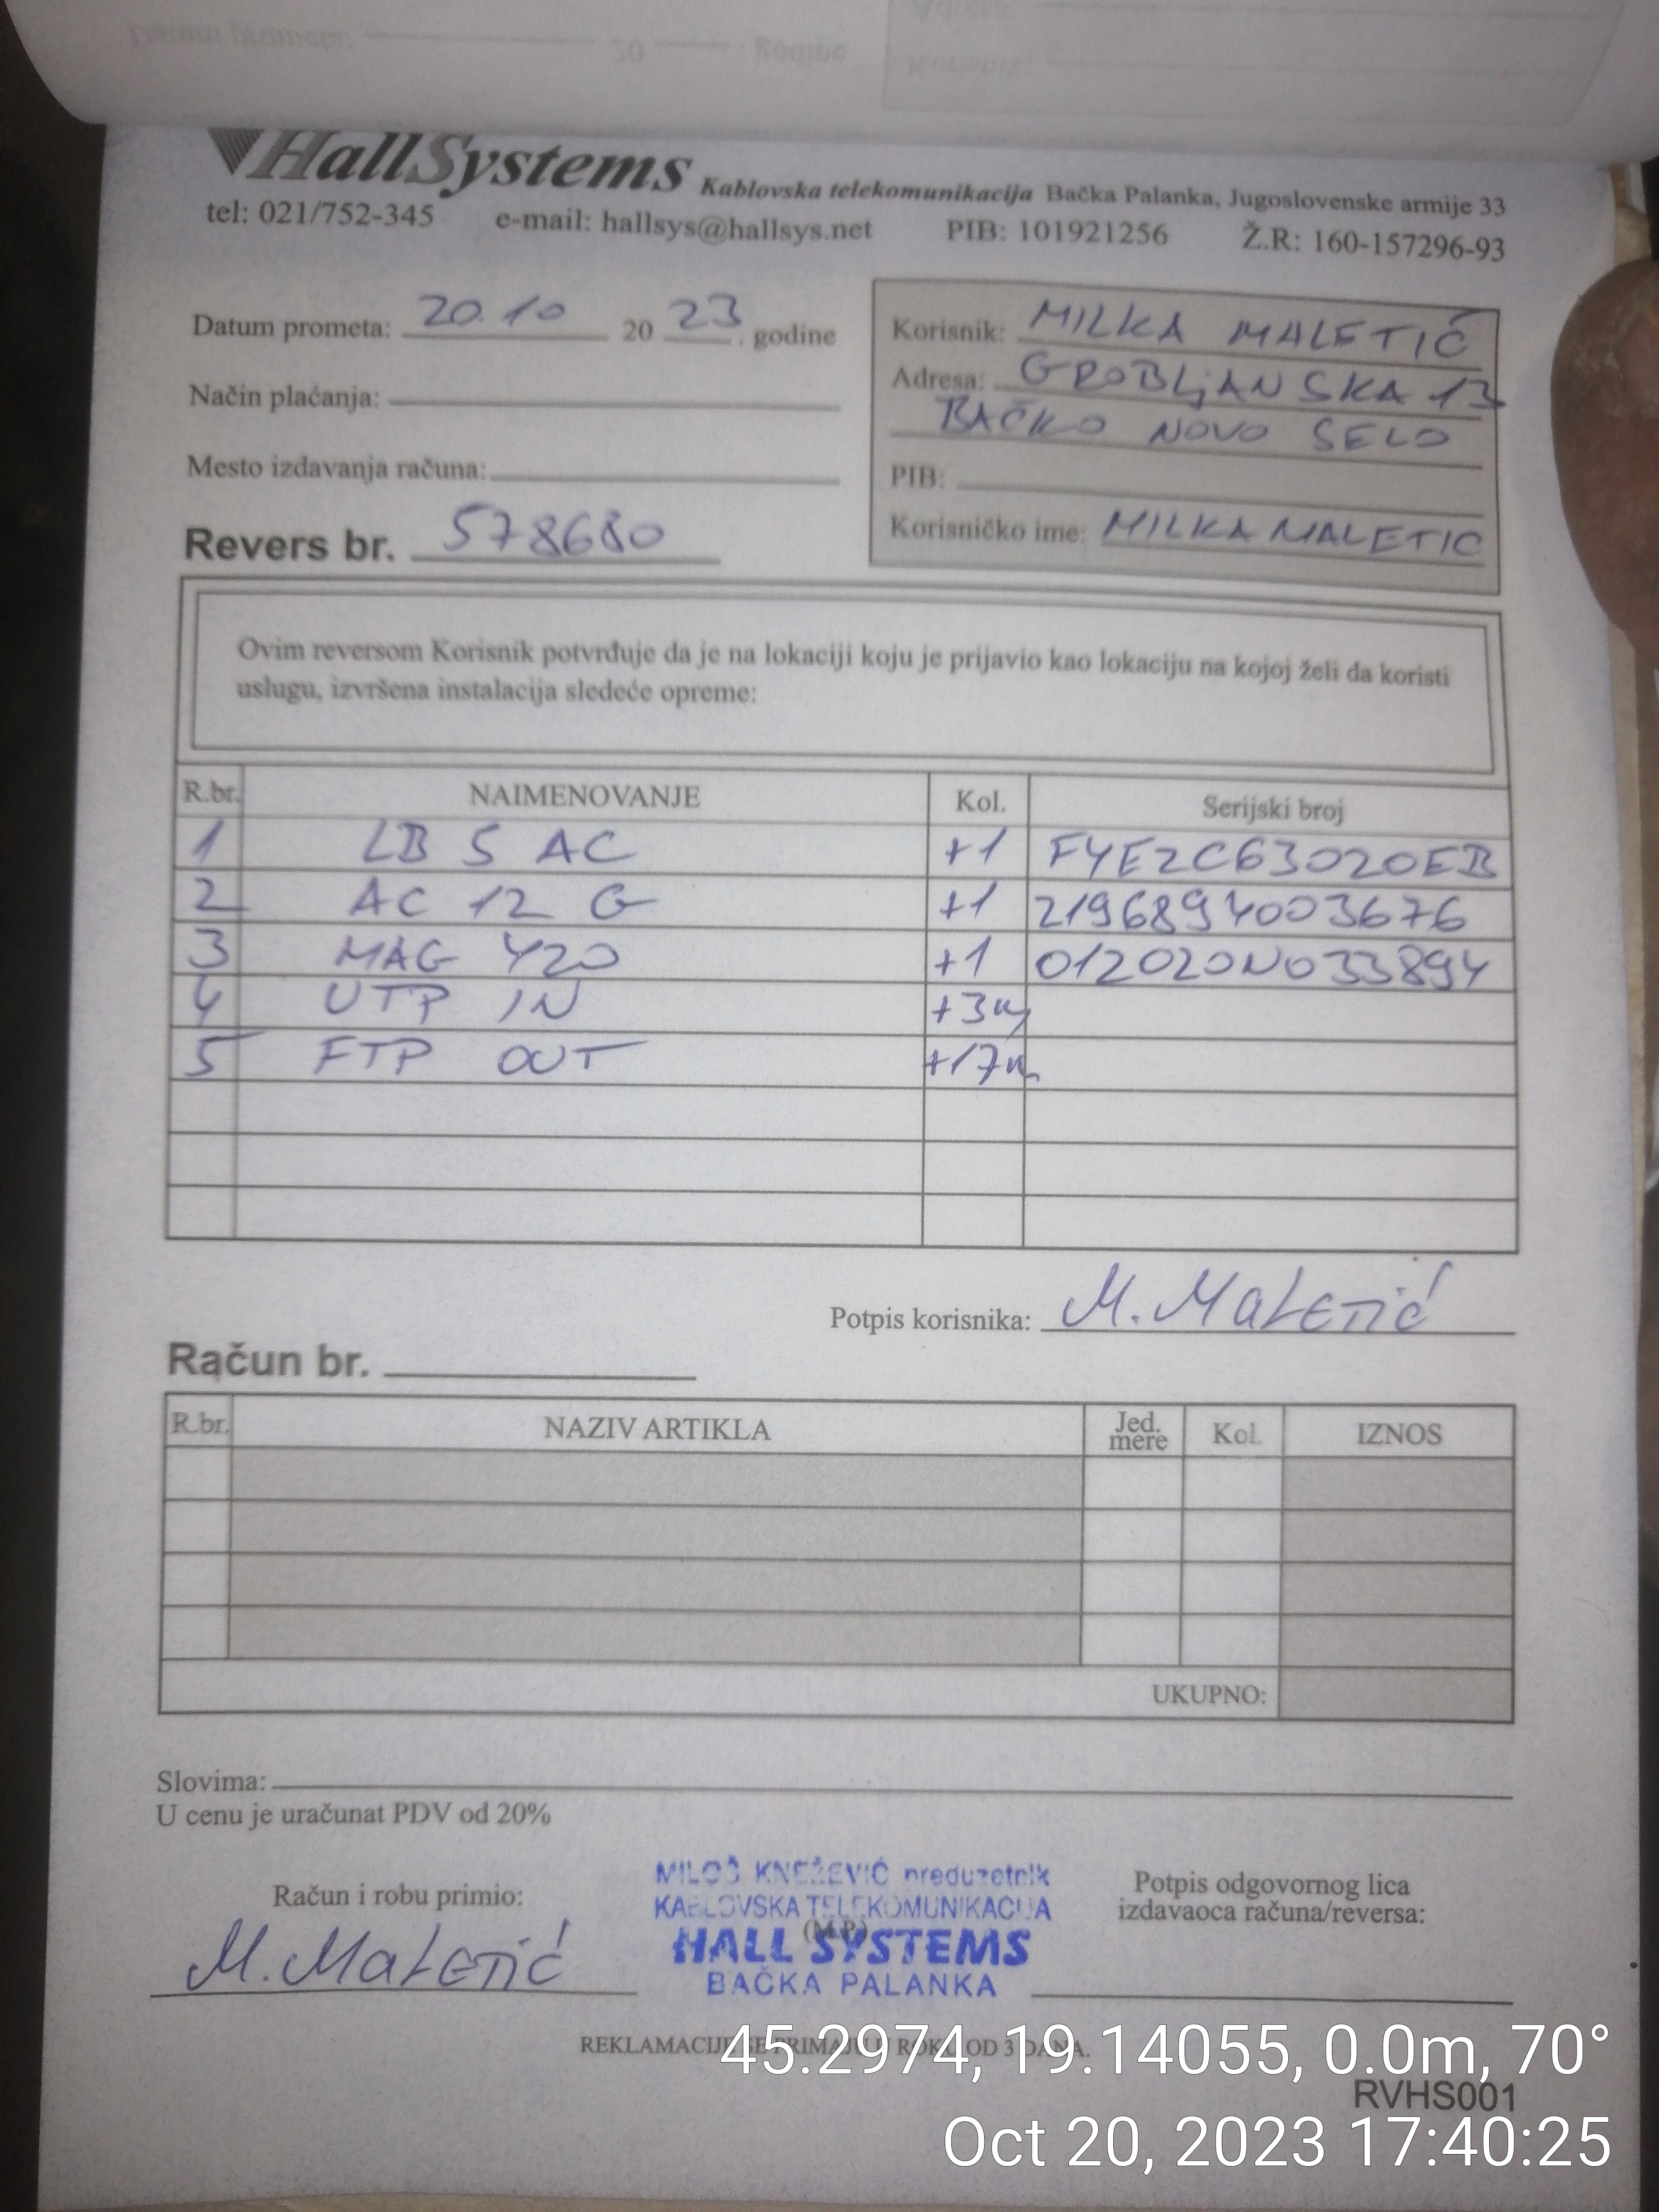 HallSystems Kablovska telekomunikacija Bačka Palanka, Jugoslovenske armije 33
tel: 021/752-345 e-mail: hallsys@hallsys.net PIB: 101921256 Ž.R: 160-157296-93
Datum prometa: 20.10 20 23 godine
Način plaćanja:
Mesto izdavanja računa:
Revers br. 578680
Korisnik: MILKA MALETIĆ
Adresa: GROBLJANSKA 13
BAČKO NOVO SELO
PIB:
Korisničko ime: MILKAMALETIC
Ovim reversom Korisnik potvrđuje da je na lokaciji koju je prijavio kao lokaciju na kojoj želi da koristi
uslugu, izvršena instalacija sledeće opreme:
R.br. NAIMENOVANJE Kol. Serijski broj
1 LB 5 AC +1 F4E2C63020EB
2 AC 12 G +1 2196894003676
3 MAG 420 +1 012020N033894
4 UTP IN +3m
5 FTP OUT +17m
Potpis korisnika: M. Maletić
Račun br.
R.br. NAZIV ARTIKLA Jed. mere Kol. IZNOS
UKUPNO:
Slovima:
U cenu je uračunat PDV od 20%
Račun i robu primio:
M. Maletić
MILOŠ KNEŽEVIĆ preduzetnik
KABLOVSKA TELEKOMUNIKACIJA
(M.P.)
HALL SYSTEMS
BAČKA PALANKA
Potpis odgovornog lica
izdavaoca računa/reversa:
REKLAMACIJE SE PRIMAJU U ROKU OD 3 DANA.
45.2974, 19.14055, 0.0m, 70°
RVHS001
Oct 20, 2023 17:40:25